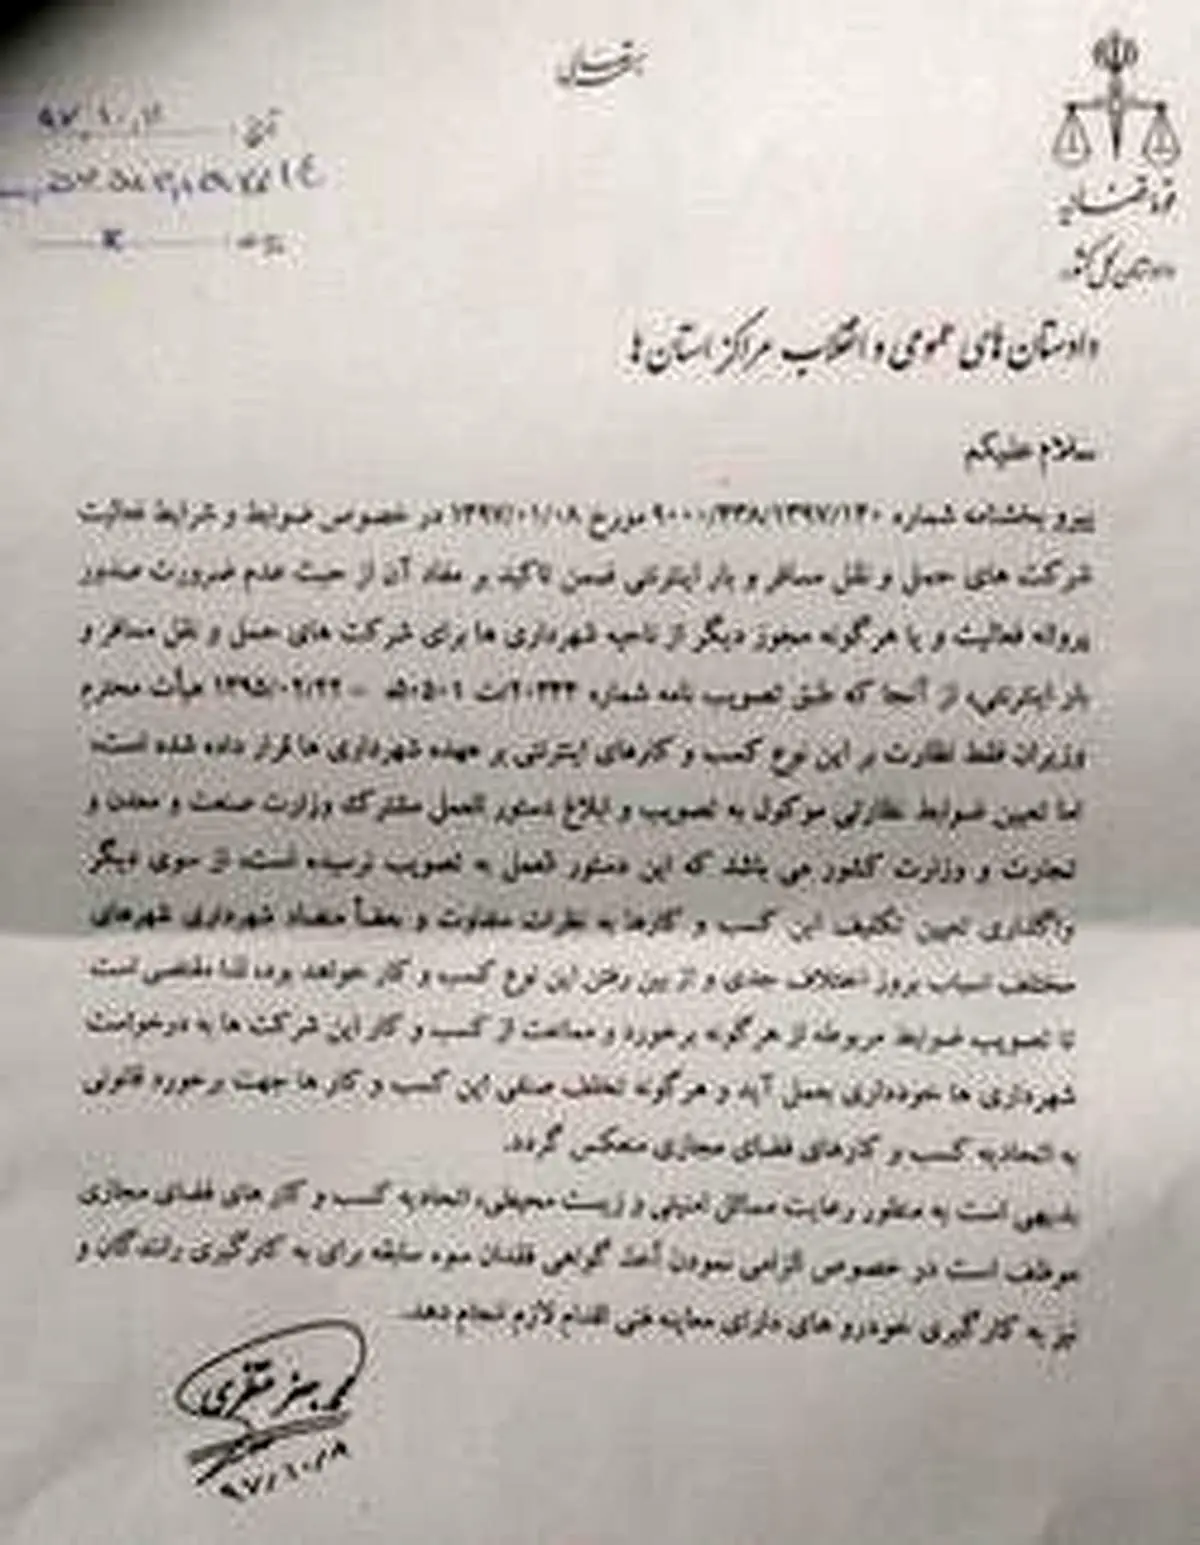 بسمه تعالی
قوه قضائیه
دادستان کل کشور
تاریخ: ۹۷/۱۰/
دادستان های عمومی و انقلاب مراکز استان ها
سلام علیکم
پیرو بخشنامه شماره ۹۰۰۰/۳۳۸/۱۳۹۷/۱۳۰ مورخ ۱۳۹۷/۰۱/۰۸ در خصوص ضوابط و شرایط فعالیت
شرکت های حمل و نقل مسافر و بار اینترنتی ضمن تاکید بر مفاد آن از حیث عدم ضرورت صدور
پروانه فعالیت و یا هرگونه مجوز دیگر از ناحیه شهرداری ها برای شرکت های حمل و نقل مسافر و
بار اینترنتی، از آنجا که طبق تصویب نامه شماره ۲۰۳۳۴/ت ۵۰۵۰۱ه – ۱۳۹۵/۰۲/۲۲ هیأت محترم
وزیران فقط نظارت بر این نوع کسب و کارهای اینترنتی بر عهده شهرداری ها قرار داده شده است،
اما تعیین ضوابط نظارتی موکول به تصویب و ابلاغ دستور العمل مشترک وزارت صنعت و معدن و
تجارت و وزارت کشور می باشد که این دستور العمل به تصویب نرسیده است، از سوی دیگر
واگذاری تعیین تکلیف این کسب و کارها به نظرات متفاوت و بعضاً متضاد شهرداری شهرهای
مختلف اسباب بروز اختلاف جدی و از بین رفتن این نوع کسب و کار خواهد بود، لذا مقتضی است
تا تصویب ضوابط مربوطه از هرگونه برخورد و ممانعت از کسب و کار این شرکت ها به درخواست
شهرداری ها خودداری بعمل آید و هرگونه تخلف صنفی این کسب و کار ها جهت برخورد قانونی
به اتحادیه کسب و کارهای فضای مجازی منعکس گردد.
بدیهی است به منظور رعایت مسائل امنیتی و زیست محیطی، اتحادیه کسب و کار های فضای مجازی
موظف است در خصوص الزامی نمودن أخذ گواهی فقدان سوء سابقه برای به کارگیری رانندگان و
نیز به کارگیری خودرو های دارای معاینه فنی اقدام لازم انجام دهد.
محمد جعفر منتظری
۹۷/۱۰/۸